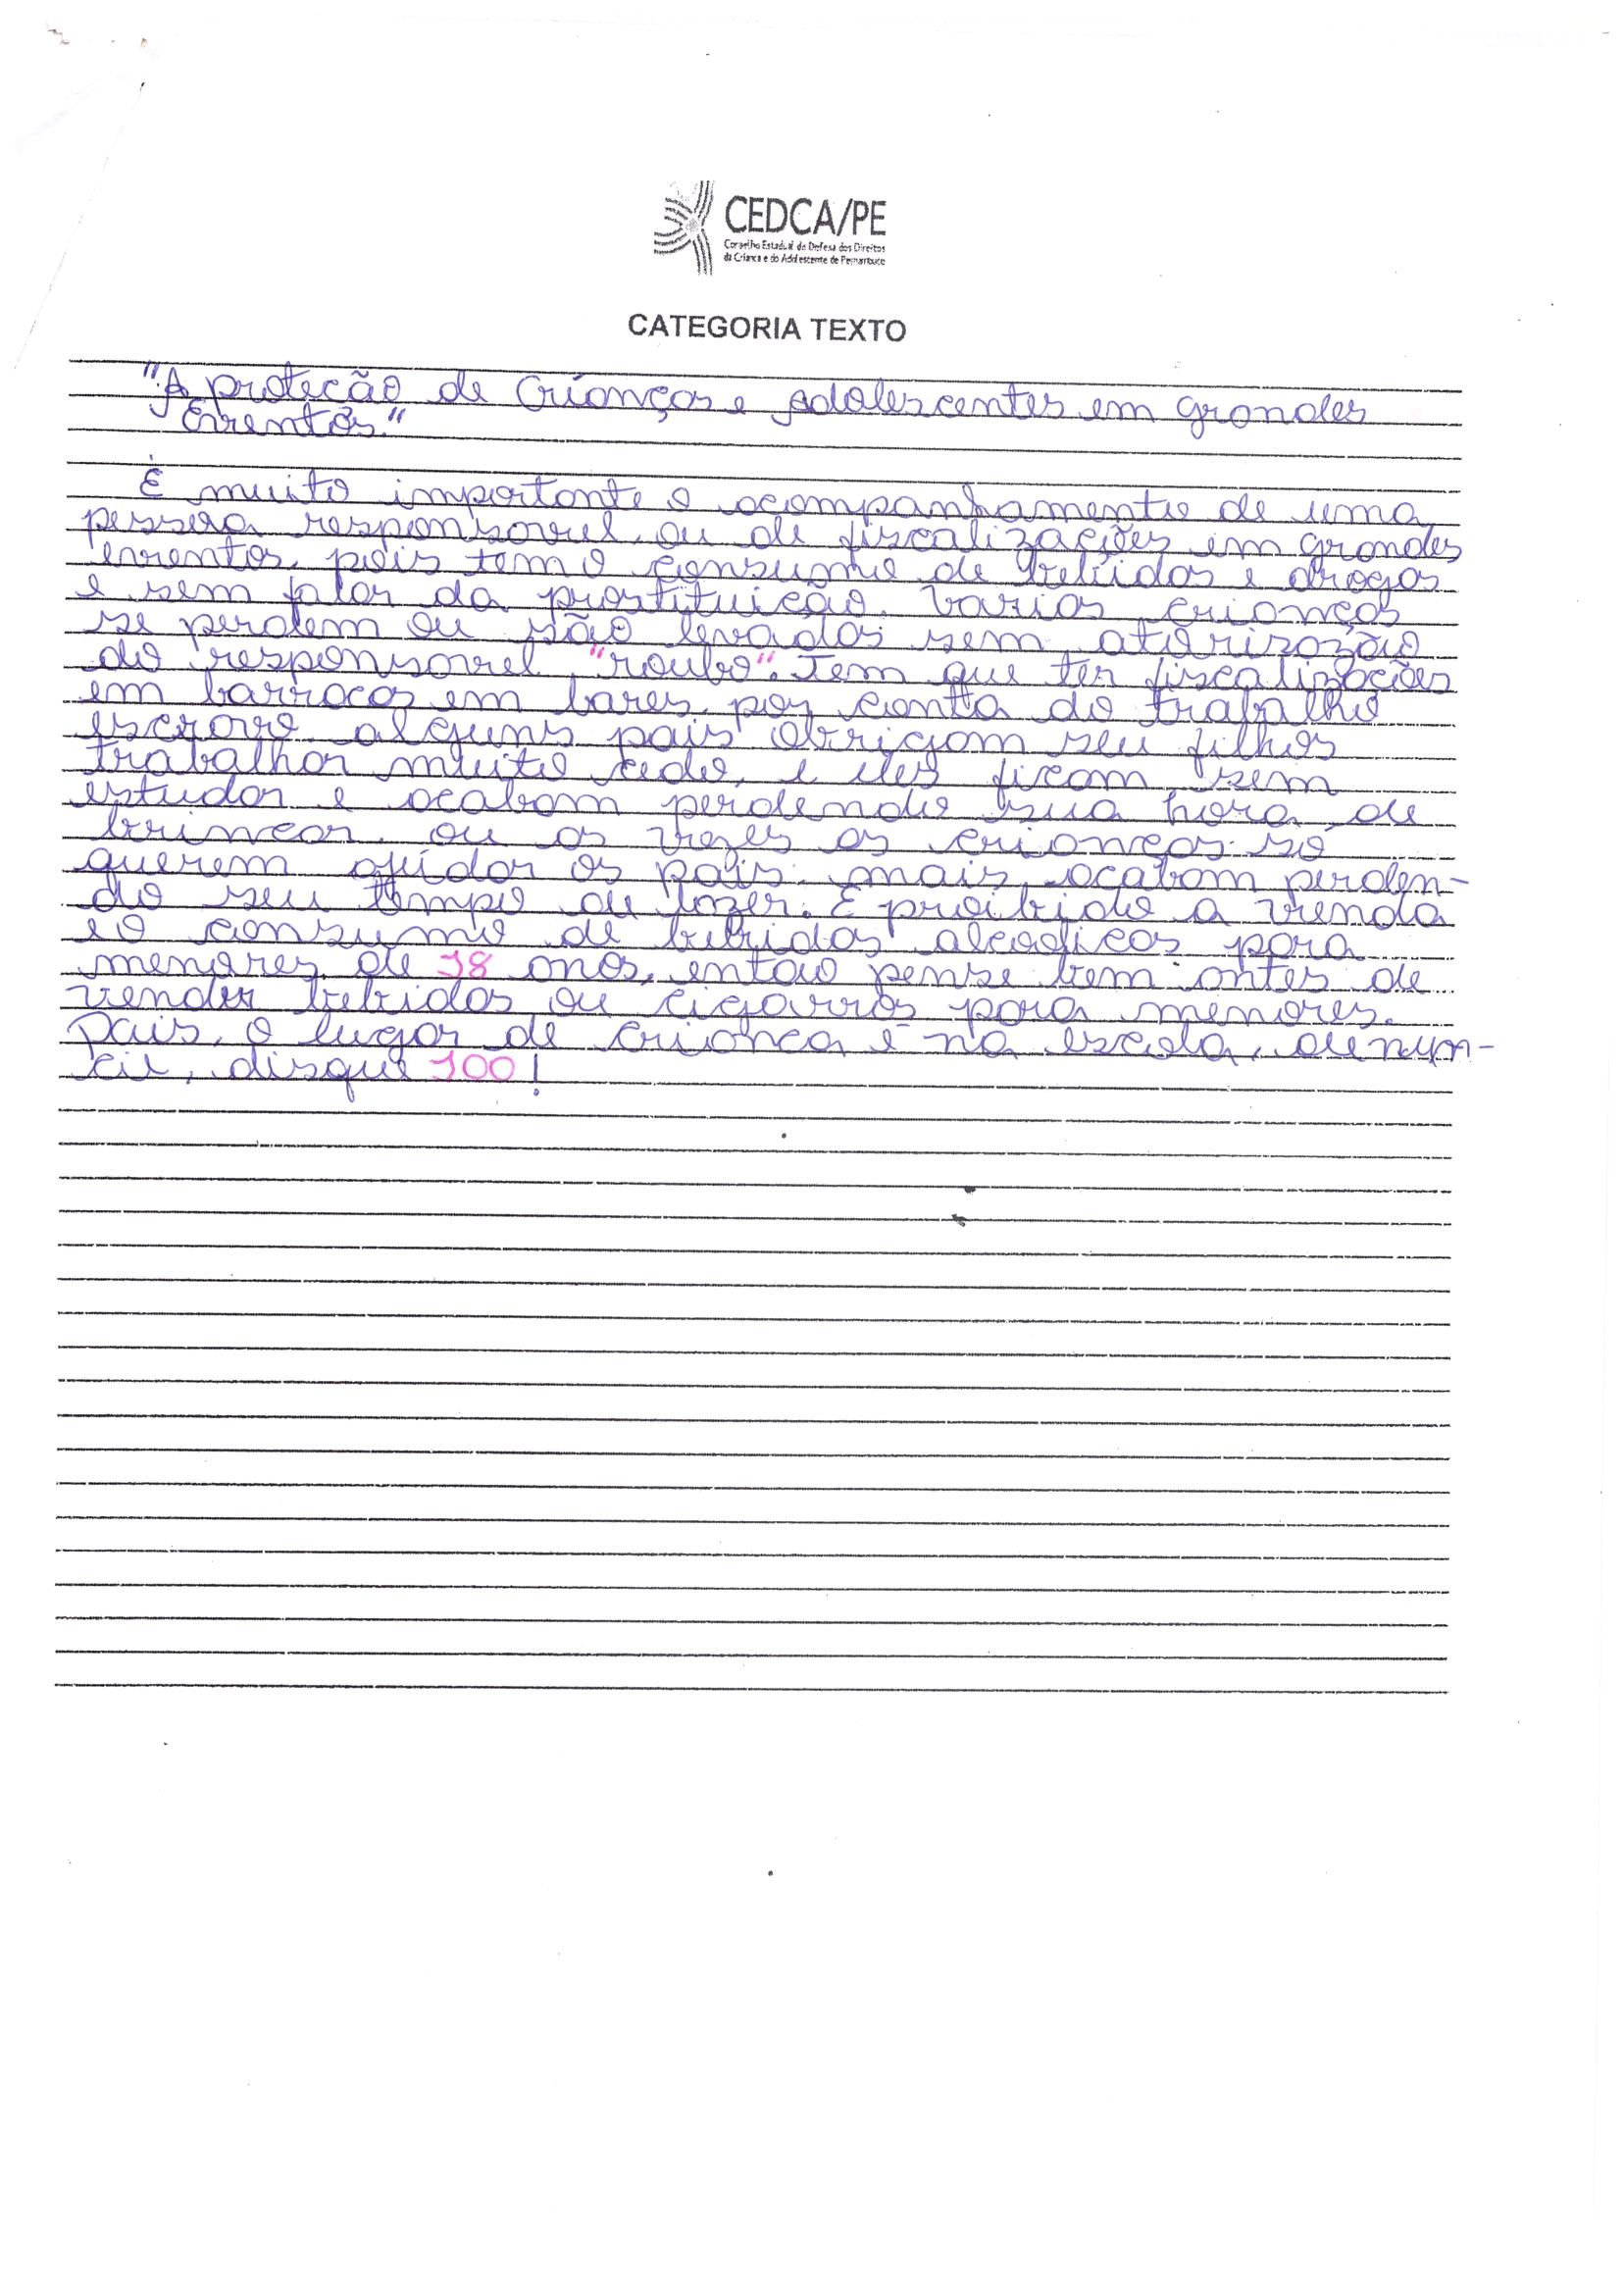 CEDCA/PE
Conselho Estadual de Defesa dos Direitos
da Criança e do Adolescente de Pernambuco
CATEGORIA TEXTO
"A proteção de Crianças e Adolescentes em grandes
Eventos."
É muito importante o acompanhamento de uma
pessoa responsavel, ou de fiscalizações em grandes
eventos, pois tem o consumo de bebidas e drogas
e sem falar da prostituição. Varias crianças
se perdem ou são levadas sem atorizozão
do responsavel "roubo". Tem que ter fiscalizações
em barracas, em bares, por conta do trabalho
escravo, alguns pais obrigam seu filhos
trabalhar muito cedo, e eles ficam sem
estudar e acabam perdendo sua hora de
brincar, ou as vezes as crianças só
querem ajudar os pais, mais acabam perden-
do seu tempo de lazer. É proibido a venda
e o consumo de bebidas alcoolicas para
menores de 18 anos, então pense bem antes de
vender bebidas ou cigarros para menores.
Pais, o lugar de criança é na escola, denun-
cie, disque 100!